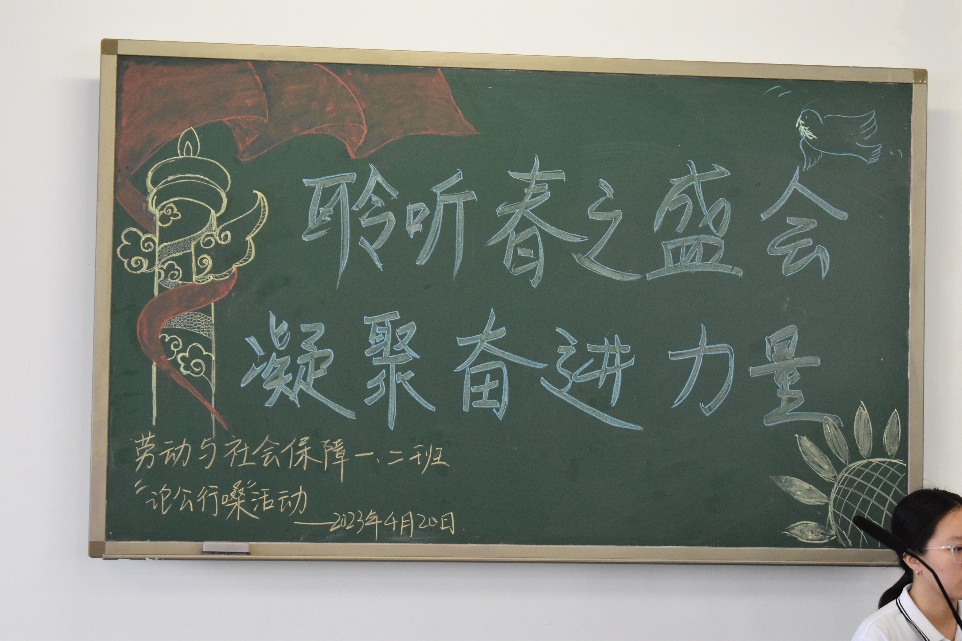 聆听春之盛会
凝聚奋进力量
劳动与社会保障一、二班
“论公行嗓”活动
——2023年4月20日